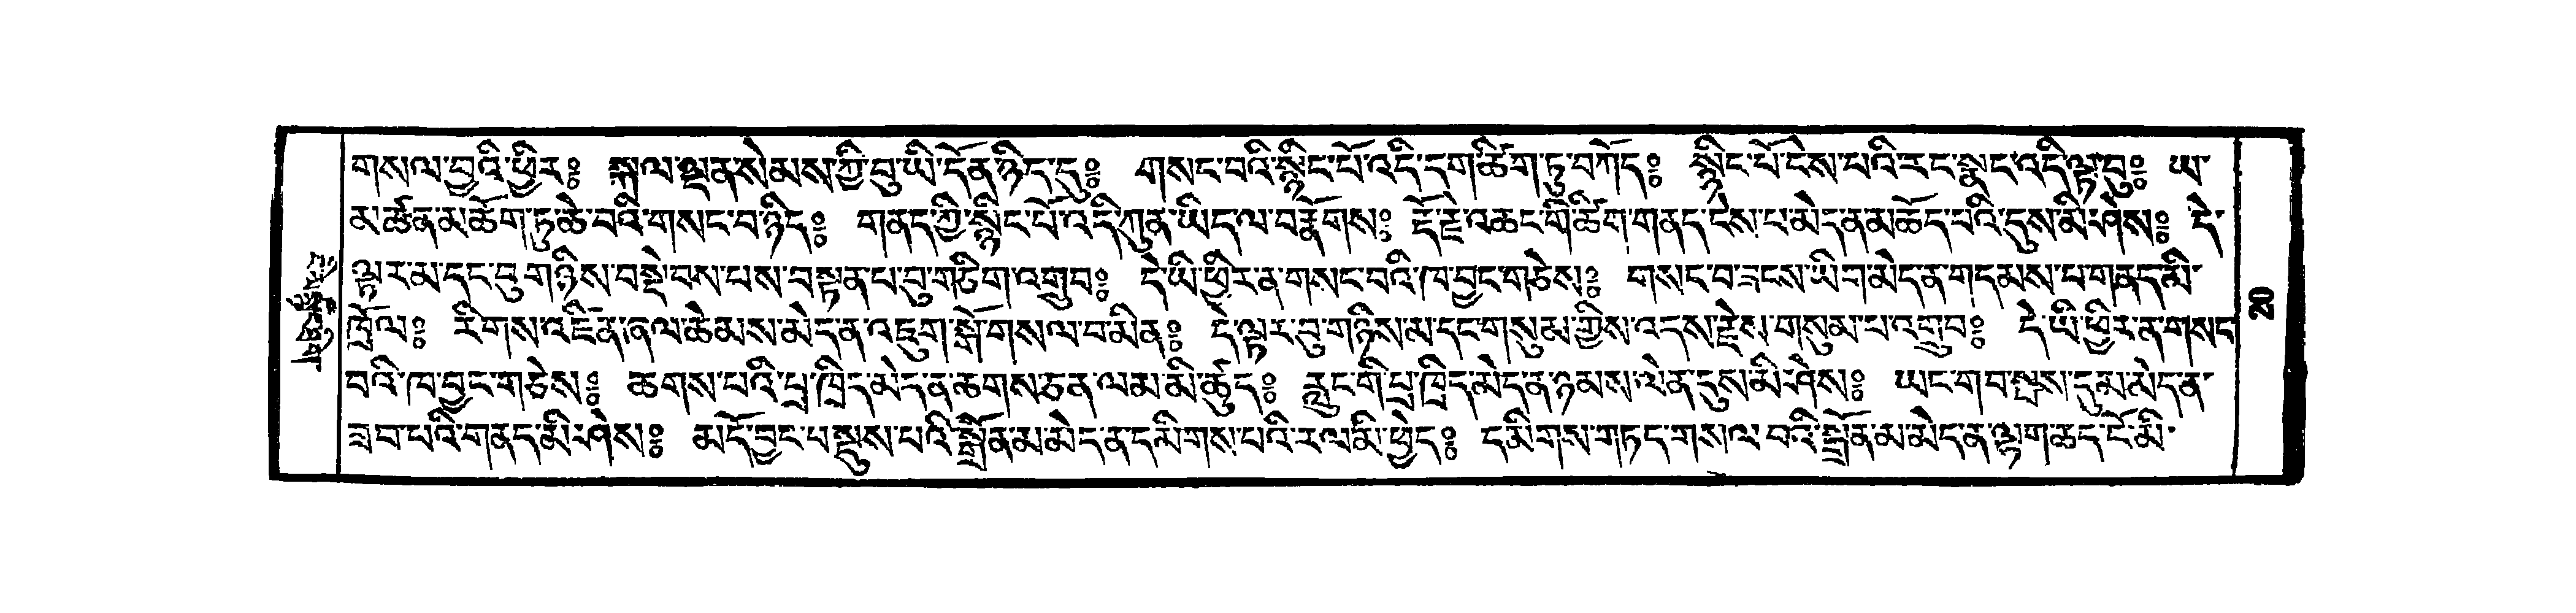 གསལ་བྱའི་ཕྱིར༔ སྐལ་ལྡན་སེམས་ཀྱི་བུ་ཡི་དོན་ཉིད་དུ༔ གསང་བའི་སྙིང་པོ་འདི་དག་ཚིག་ཏུ་བཀོད༔ སྙིང་པོ་ངེས་པའི་རང་སྣང་འདི་ལྟ་བུ༔ ཡ་
མ་ཚན་མ་ཆོག་ཏུ་ཆེ་བའི་གསང་བ་ཉིད༔ གནད་ཀྱི་སྙིང་པོ་འདི་ཀུན་ཡིད་ལ་བརྣོགས༔ རྡོ་རྗེ་འཆང་གི་ཚིག་གནད་ངེས་པ་མེད་ན་མཆོད་པའི་དུས་མི་ཤེས༔ དེ་
ལྟར་མ་དང་བུ་གཉིས་བསྡེབས་པས་བསྟན་པ་བུ་གཅིག་འགྲུབ༔ དེ་ཡི་ཕྱིར་ན་གསང་བའི་ཁ་བྱང་གཅེས༔ གསང་བ་ཟངས་ཡིག་མེད་ན་གདམས་པ་གནད་མི་
ཁྲོལ༔ རིགས་འཛིན་ཞལ་ཆེམས་མེད་ན་འཇུག་སྒོ་གསལ་བ་མིན༔ དེ་ལྟར་བུ་གཉིས་མ་དང་གསུམ་གྱིས་འདས་རྗེས་གསུམ་པ་འགྲུབ༔ དེ་ཡི་ཕྱིར་ན་གསང་
བའི་ཁ་བྱང་གཅེས༔ ཆགས་པའི་པྲ་ཁྲིད་མེད་ན་ཆགས་ཅན་ལམ་མི་ཚུད༔ རླུང་གི་པྲ་ཁྲིད་མེད་ན་ཉམས་ལེན་དུས་མི་ཤེས༔ ཡང་གབ་སྤས་དུམ་མེད་ན་
ཟབ་པའི་གནད་མི་ཤེས༔ མདོ་བྱང་པ་སྤུས་པའི་སྒྲོན་མ་མེད་ན་དམིགས་པའི་རལ་མི་ཕྱེད༔ དམིགས་གཏད་གསལ་བའི་སྒྲོན་མ་མེད་ན་ལྷག་ཆད་ངོ་མི་